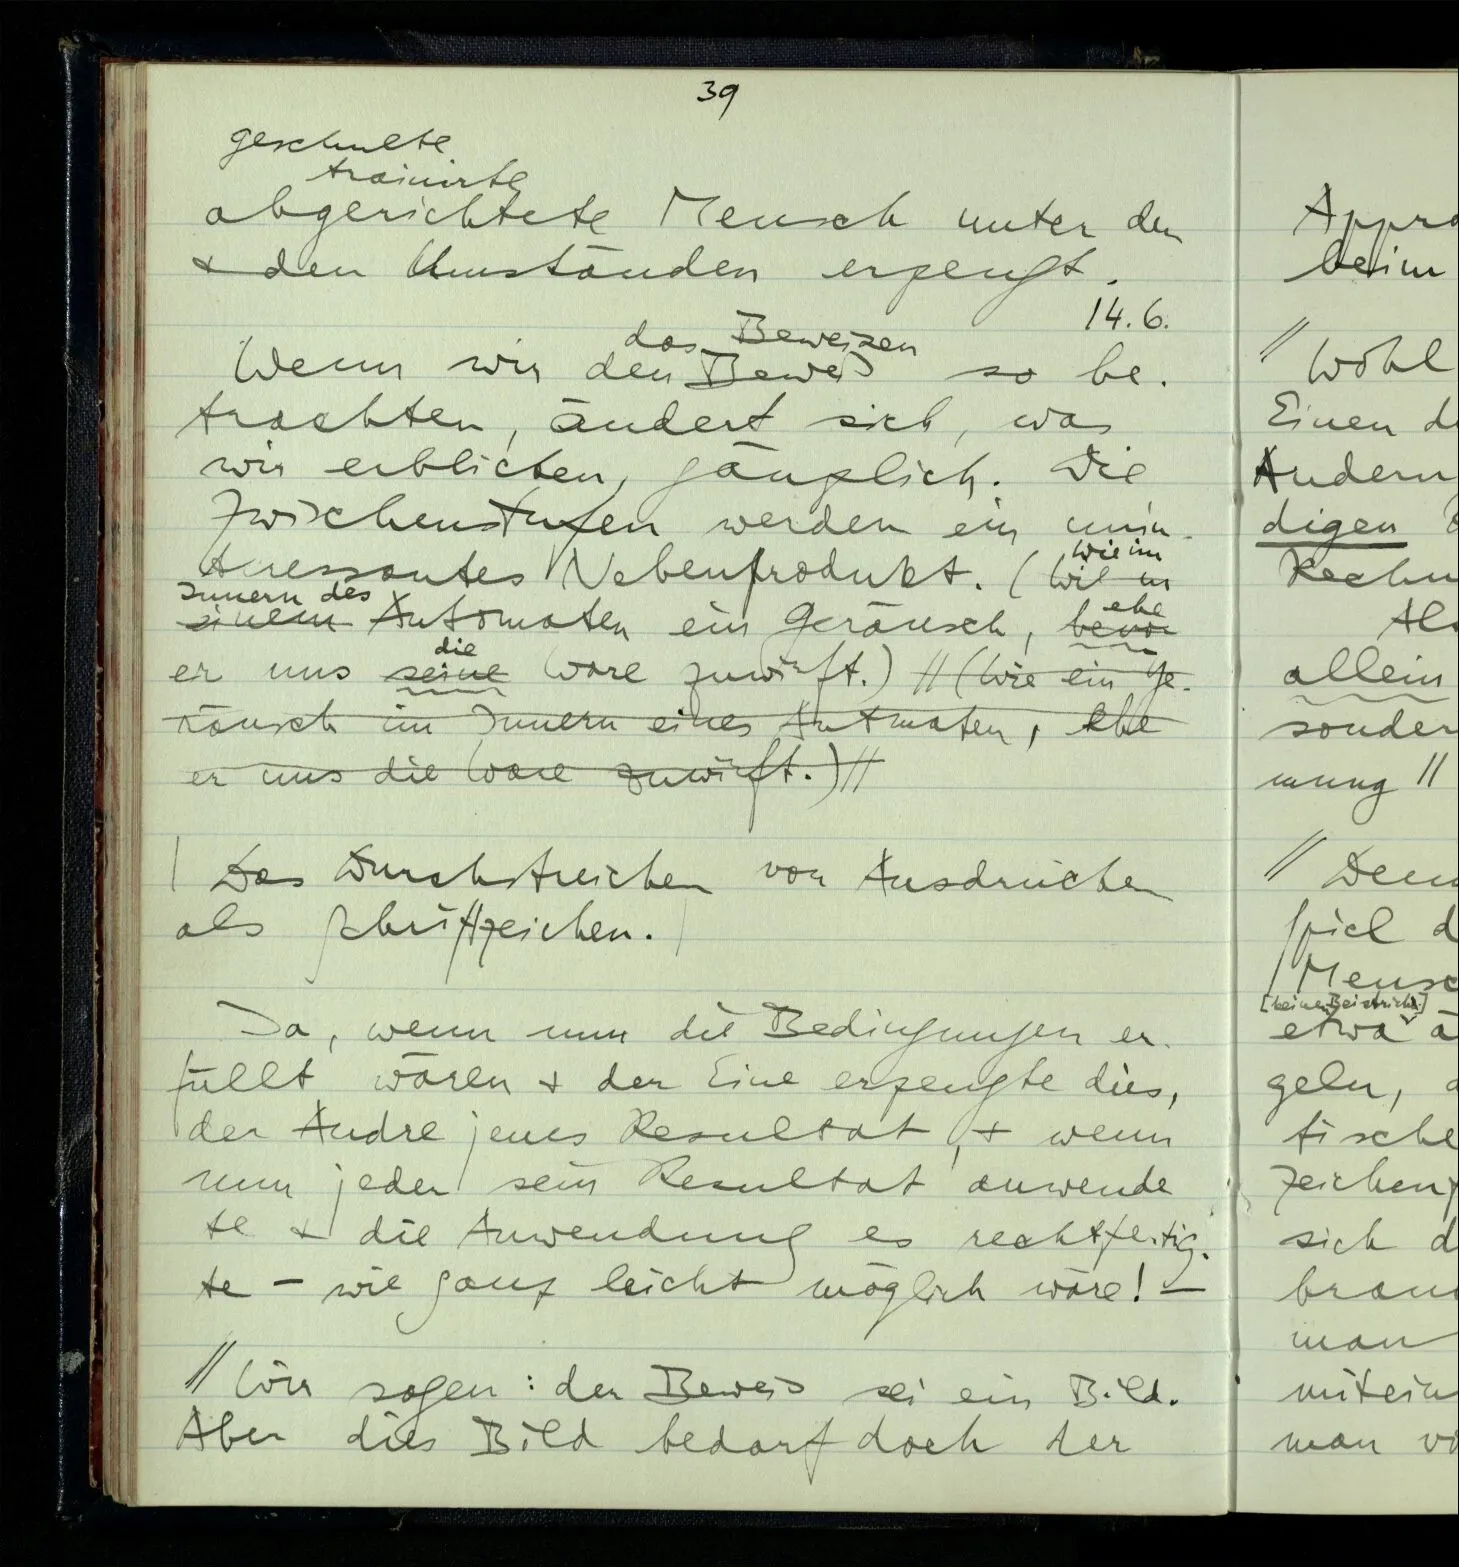 39
geschulte
trainirte
abgerichtete Mensch unter den
& den Umständen erzeugt.
14.6.
das Beweisen
Wenn wir den Beweis so be-
trachten, ändert sich, was
wir erblicken, gänzlich. Die
Zwischenstufen werden ein unin-
wie im
teressantes Nebenprodukt. (Wie in
Innern des
einem Automaten ein Geräusch, bevor
ehe
die
er uns seine Ware zuwirft.) // (Wie ein Ge-
räusch im Innern eines Automaten, ehe
er uns die Ware zuwirft.) //
| Das Durchstreichen von Ausdrücken
als Schriftzeichen. |
Ja, wenn nun die Bedingungen er-
füllt wären & der Eine erzeugte dies,
der Andre jenes Resultat, & wenn
nun jeder sein Resultat anwende
te & die Anwendung es rechtfertig-
te – wie ganz leicht möglich wäre! –
// Wir sagen: der Beweis sei ein Bild.
Aber dies Bild bedarf doch der
Appro
beim
// Wohl
Einen d
Andern
digen
Rechn
Als
allein
sonder
mung //
// Denn
spiel d
Mensc
etwa ä
geln,
tische
zeichen
sich d
brau
man
mitein
man vo